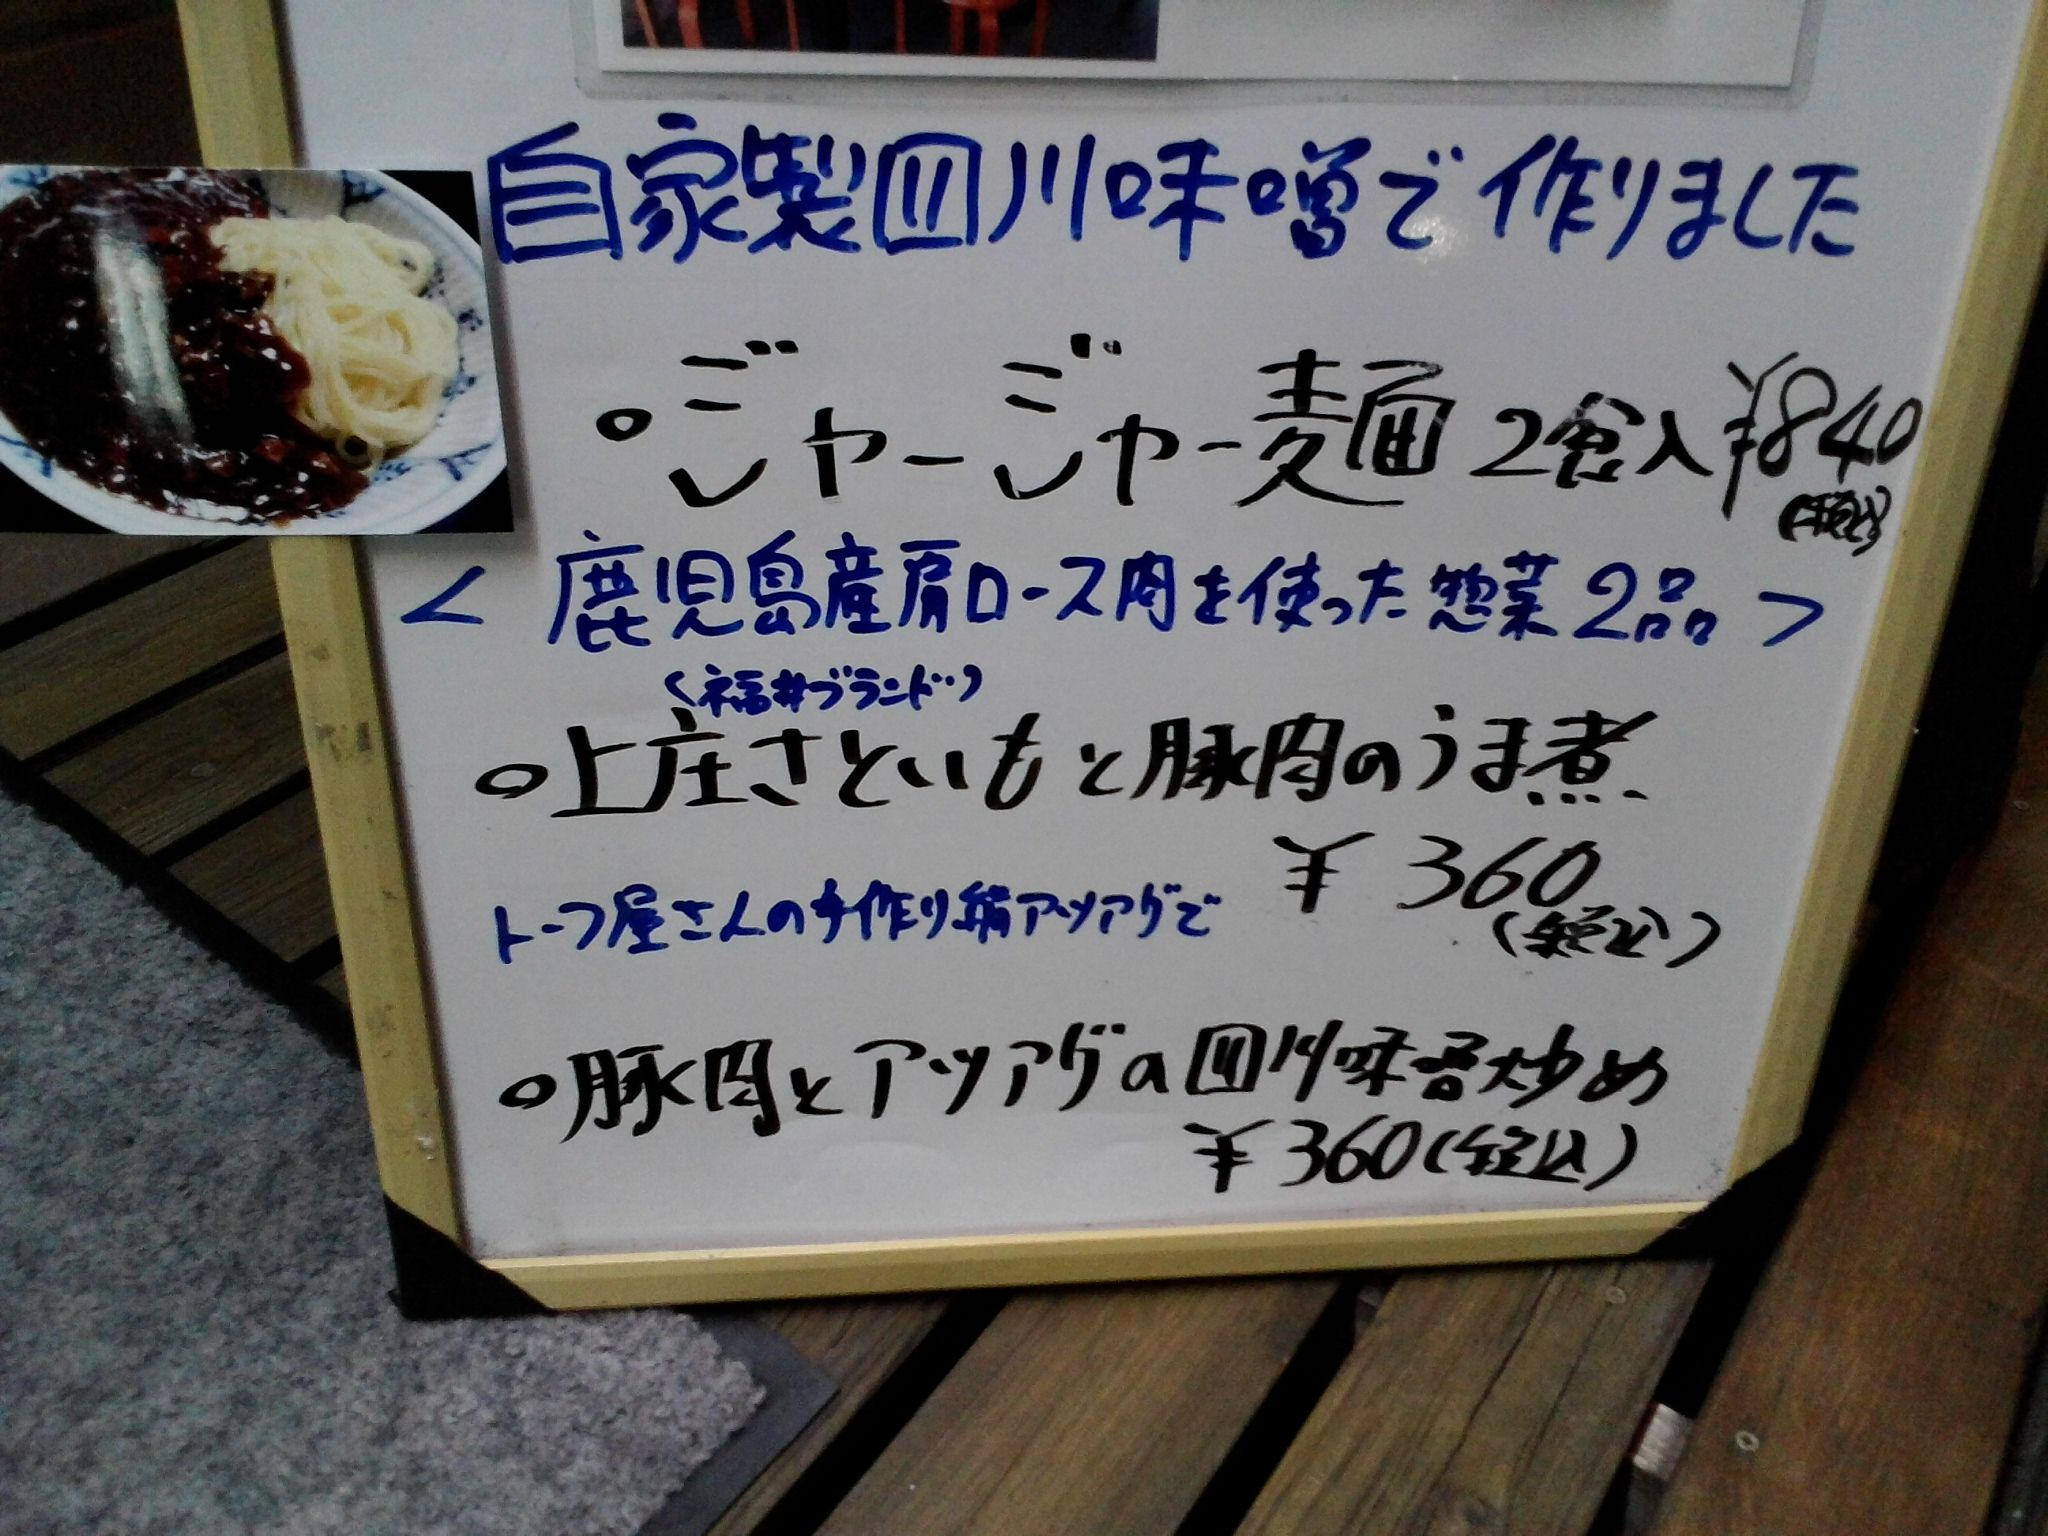 自家製四川味噌で作りました
○ジャージャー麺 2食入 ¥840
(税込)
< 鹿児島産肩ロース肉を使った惣菜2品 >
(福井ブランド)
○上庄さといもと豚肉のうま煮
¥360
(税込)
トーフ屋さんの手作り絹アツアゲで
○豚肉とアツアゲの四川味噌炒め
¥360(税込)